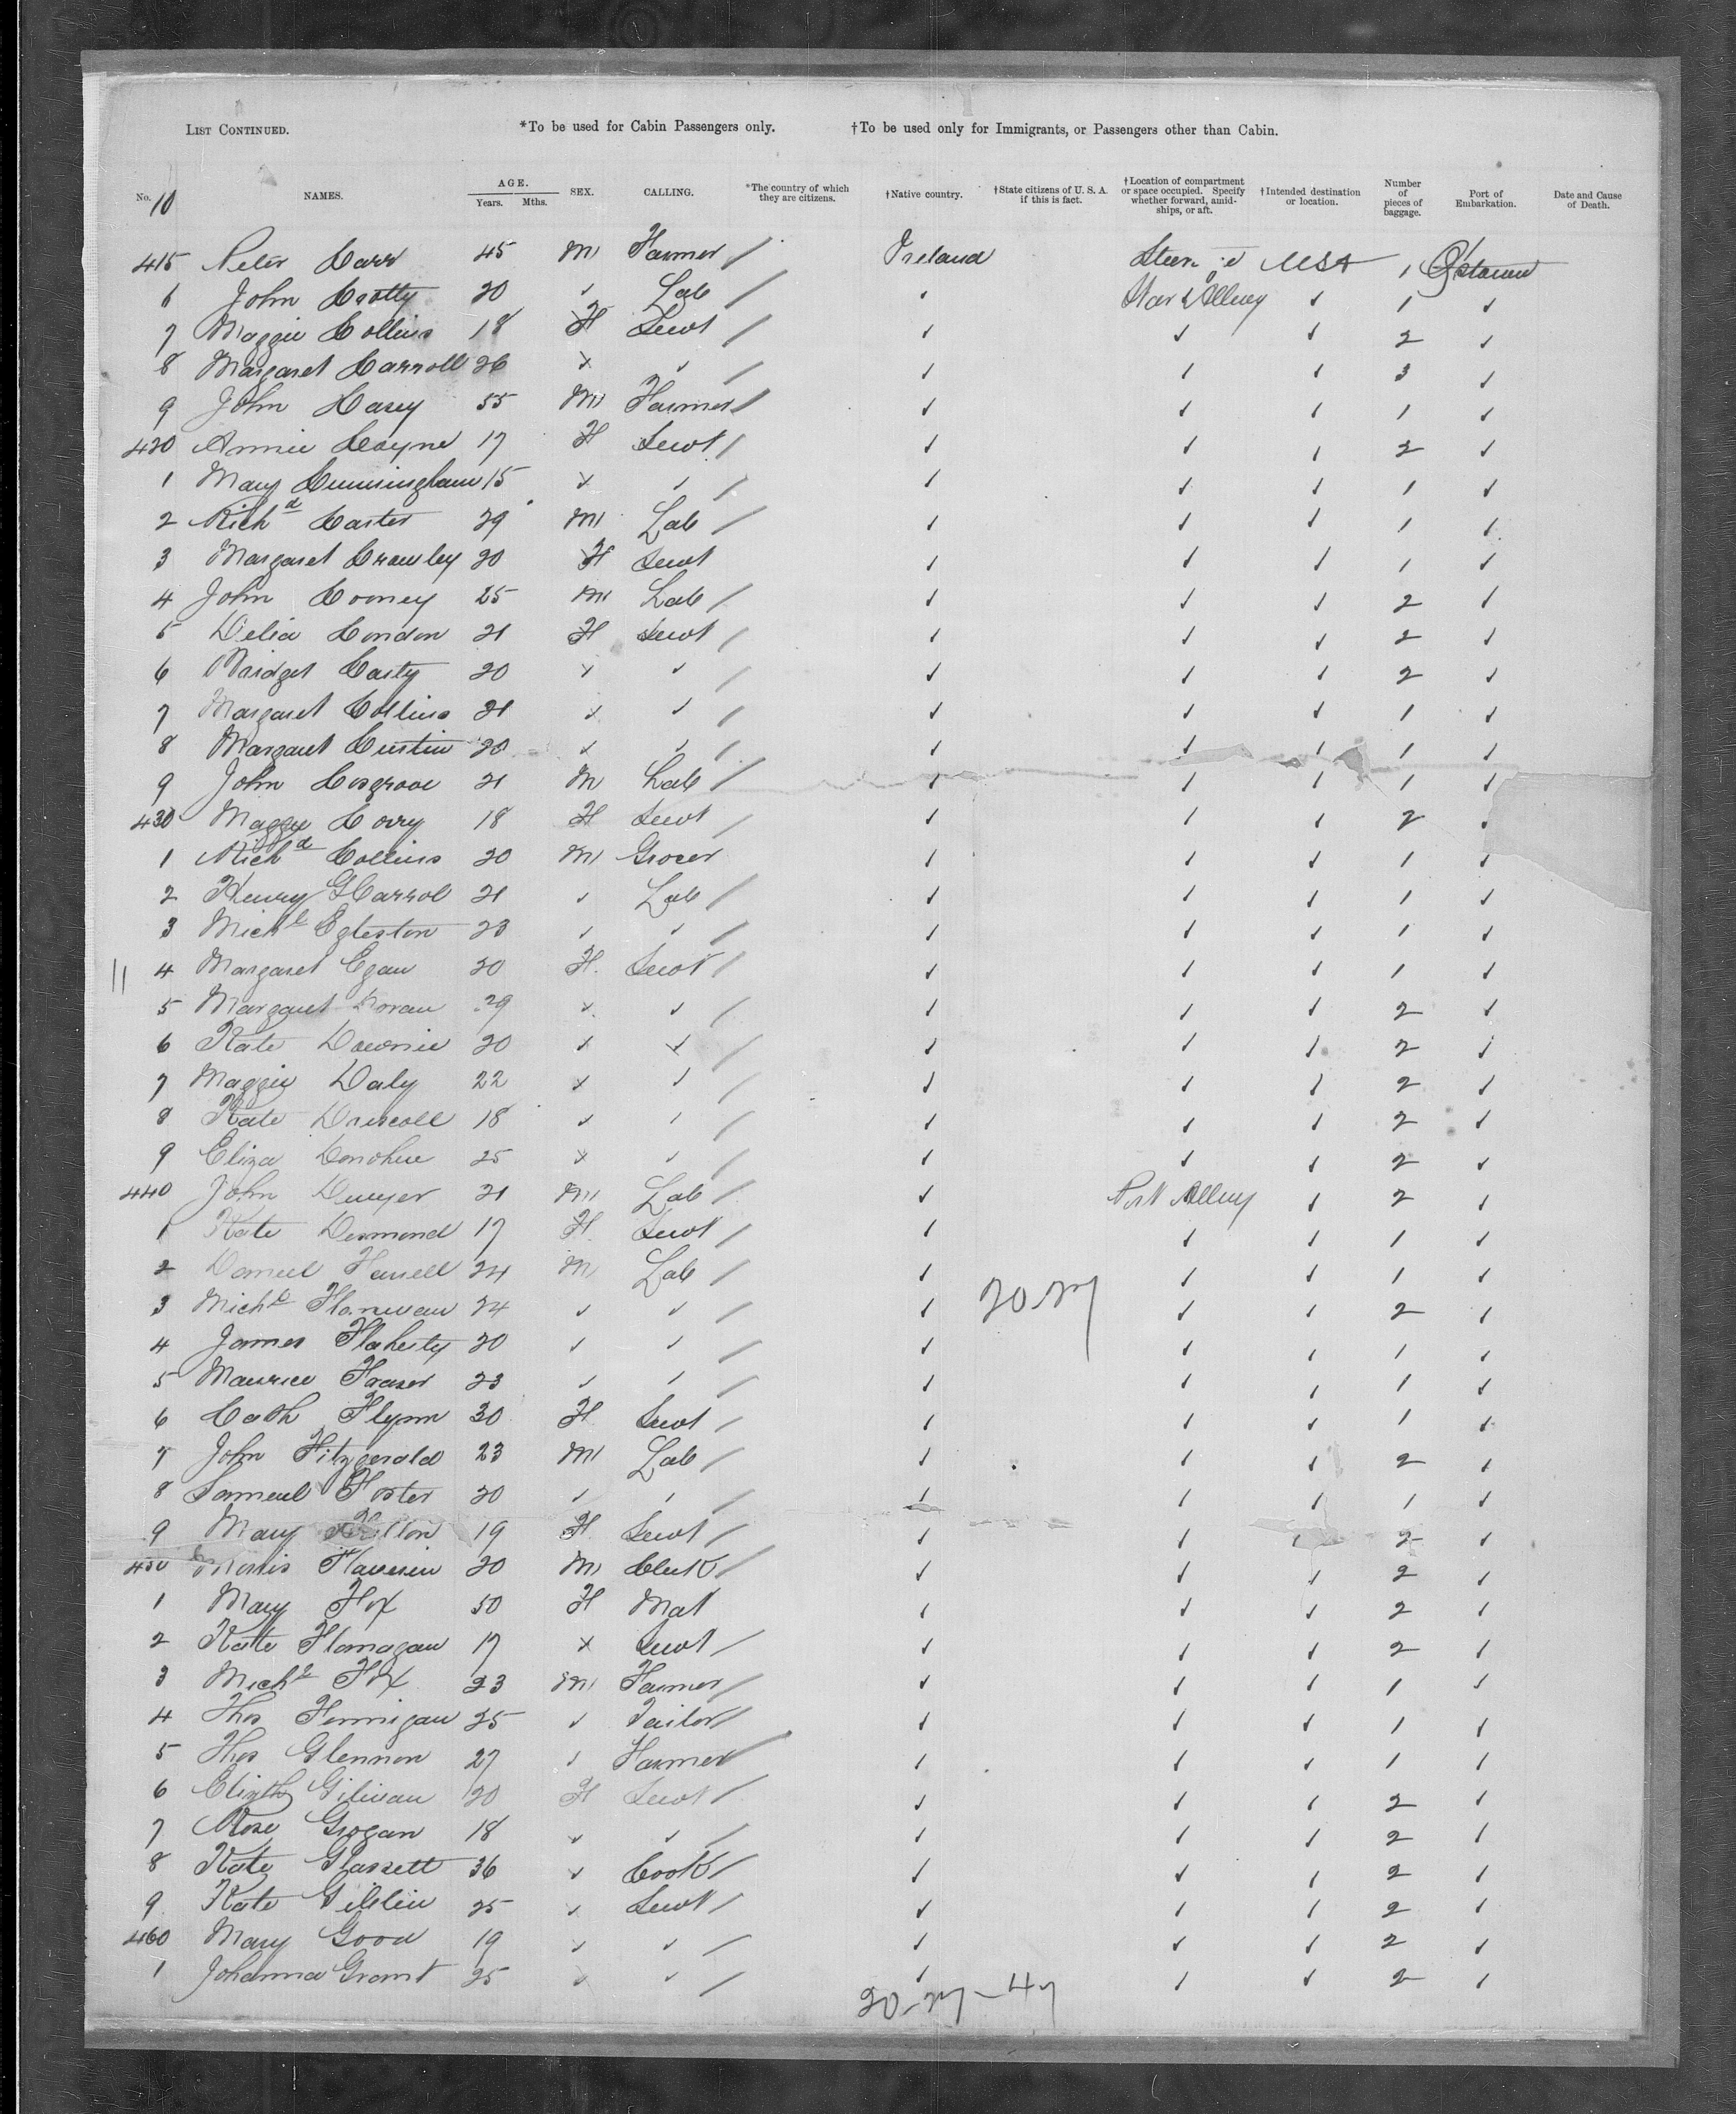 LIST CONTINUED. *To be used for Cabin Passengers only. †To be used only for Immigrants, or Passengers other than Cabin.
No. 10 NAMES. AGE. Years. Mths. SEX. CALLING. *The country of which they are citizens. †Native country. †State citizens of U. S. A. if this is fact. †Location of compartment or space occupied. Specify whether forward, amidships, or aft. †Intended destination or location. Number of pieces of baggage. Port of Embarkation. Date and Cause of Death.
415 Peter Carr 45 M Farmer / Ireland USA 1
6 John Crotty 20 ✓ Lab / ✓ Star Allewy ✓ 1 ✓
7 Maggie Collins 18 F Servt / ✓ ✓ ✓ 2 ✓
8 Margaret Carroll 26 ✓ ✓ / ✓ ✓ ✓ 3 ✓
9 John Casey 55 M Farmer / ✓ ✓ ✓ 1 ✓
420 Annie Coyne 17 F Servt / ✓ ✓ ✓ 2 ✓
1 Mary Cunningham 15 ✓ ✓ / ✓ ✓ ✓ 1 ✓
2 Richd Carter 29 M Lab / ✓ ✓ ✓ 1 ✓
3 Margaret Crowley 20 F Servt ✓ ✓ ✓ 1 ✓
4 John Cooney 25 M Lab / ✓ ✓ ✓ 2 ✓
5 Delia Condon 21 F Servt / ✓ ✓ ✓ 2 ✓
6 Bridget Casty 20 ✓ ✓ / ✓ ✓ ✓ 2 ✓
7 Margaret Collins 21 ✓ ✓ / ✓ ✓ ✓ 1 ✓
8 Margaret Custin 20 ✓ ✓ / ✓ ✓ ✓ 1 ✓
9 John Cosgrove 21 M Lab / ✓ ✓ ✓ 1 ✓
430 Maggie Corry 18 F Servt / ✓ ✓ ✓ 2 ✓
1 Richd Collins 20 M Grocer ✓ ✓ ✓ 1 ✓
2 Henry G Carrol 21 ✓ Lab / ✓ ✓ ✓ 1 ✓
3 Michl Egleston 23 ✓ ✓ / ✓ ✓ ✓ 1 ✓
11 4 Margaret Egan 20 F Servt / ✓ ✓ ✓ 1 ✓
5 Margaret Doran 29 ✓ ✓ / ✓ ✓ ✓ 2 ✓
6 Kate Downie 20 ✓ ✓ / ✓ ✓ ✓ 2 ✓
7 Maggie Daly 22 ✓ ✓ / ✓ ✓ ✓ 2 ✓
8 Kate Driscoll 18 ✓ ✓ / ✓ ✓ ✓ 2 ✓
9 Eliza Donohue 25 ✓ ✓ / ✓ ✓ ✓ 2 ✓
440 John Dwyer 21 M Lab / ✓ Port Allewy ✓ 2 ✓
1 Kate Desmond 17 F Servt / ✓ ✓ ✓ 1 ✓
2 Daniel Farrell 24 M Lab / ✓ ✓ ✓ 1 ✓
20 27
3 Michl 24 ✓ ✓ / ✓ ✓ ✓ 2 ✓
4 James Flaherty 20 ✓ ✓ / ✓ ✓ ✓ 1 ✓
5 Maurice Fraser 23 ✓ ✓ / ✓ ✓ ✓ 1 ✓
6 Cath Flynn 30 F Servt / ✓ ✓ ✓ 1 ✓
7 John Fitzgerald 23 M Lab / ✓ ✓ ✓ 2 ✓
8 Samuel Foster 20 ✓ ✓ / ✓ ✓ ✓ 1 ✓
9 Mary 19 F Servt / ✓ ✓ ✓ 2 ✓
450 Morris 20 M Clerk / ✓ ✓ ✓ 2 ✓
1 Mary Fox 50 F Mat ✓ ✓ ✓ 2 ✓
2 Kate Flanagan 17 ✓ Servt / ✓ ✓ ✓ 2 ✓
3 Michl Fox 23 M Farmer / ✓ ✓ ✓ 1 ✓
4 Thos Finnigan 25 ✓ Tailor / ✓ ✓ ✓ 1 ✓
5 Thos Glennon 27 ✓ Farmer / ✓ ✓ ✓ 1 ✓
6 Elizth 20 F Servt / ✓ ✓ ✓ 2 ✓
7 Rose Grogan 18 ✓ ✓ / ✓ ✓ ✓ 2 ✓
8 Kate Glassett 36 ✓ Cook / ✓ ✓ ✓ 2 ✓
9 Kate Gilleiu 25 ✓ Servt / ✓ ✓ ✓ 2 ✓
460 Mary Good 19 ✓ ✓ / ✓ ✓ ✓ 2 ✓
1 Johanna Grant 25 ✓ ✓ / ✓ ✓ ✓ 2 ✓
20-27-47